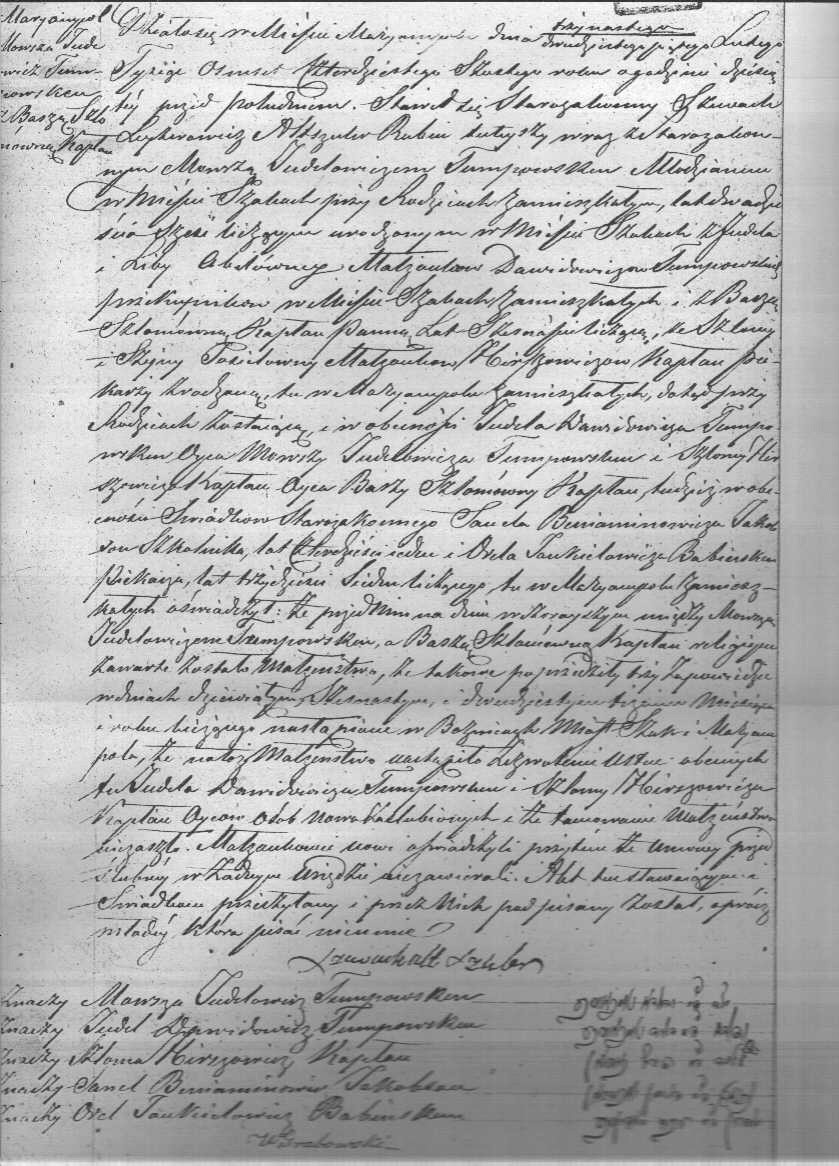 Maryampol
Mowsza Jude
z Baszą Szlo
mówną Kapłan
Działo się w Mieście Maryampolu dnia trzynastego
dwudziestego piątego Lutego
Tysiąc Osmset Czterdziestego Szóstego roku o godzinie dziesią
tej przed południem. Stawił się Starozakonny Szewach
Leyzerowicz Altszuler Rabin tutejszy wraz ze Starozakon-
nym Mowszą Judelowiczem Tumpowskim Młodzianem
w Mieście Szakach przy Rodzicach zamieszkałym, lat dwadzie
ścia sześć liczącym urodzonym w Mieście Szakach z Judela
i Liby Abelówney Małżonków Dawidowiczow Tumpowskich
przekupników w Mieście Szakach zamieszkałych i z Baszą
Szlomówną Kapłan panną, Lat Szesnaście liczącą, ze Szlomy
i Małżonków Hirszowiczow Kapłan pie-
karzy zrodzoną, tu w Maryampolu zamieszkałych, dotąd przy
Rodzicach zostaiącą, i w obecności Judela Dawidowicza Tumpo-
wsken Oyca Mowszy Judelowicza Tumpowsken i Szlomy Hir
szowicza Kapłan Oyca Baszy Szlomówny Kapłan, tudzież w obe-
cności Świadków Starozakonnego Sanela Beniaminowicza Jakob
son Szkolnika, lat Czterdzieści siedm i Orela Jankielowicza Babinsken
Piekarza, lat trzydzieści Siedm liczącego, tu w Maryampolu zamiesz-
kałych oświadczył: że przed Nim na dniu wczorayszym między Mowszą
Judelowiczem Tumpowsken, a Baszą Szlomówną Kapłan religijne
zawarte zostało Małżeństwo, że takowe poprzedziły trzy Zapowiedzie
w dniach dziewiątym, Szesnastym, i dwudziestym trzecim Miesiąca
i roku bieżącego nastąpione w Bożnicach Miast Szak i Maryam
pola, że na toż Małżeństwo nastąpiło zezwolenie ustne obecnych
tu Judela Dawidowicza Tumpowsken i Szlomy Hirszowicza
Kapłan Oyców Osób Nowozaślubionych i że tamowanie Małżeństwa
nie zaszło. Małżonkowie nowi oświadczyli przytem że Umowy przed
ślubney w żadnym Urzędzie nie zawierali. Akt ten stawającym i
Świadkom przeczytany i przez Nich podpisany został, oprócz
młodej która pisać nie umie
Szewach Alt Szuler
Znaczy Mowsza Judelowicz Tumpowsken
Znaczy Judel Dawidowicz Tumpowsken
Znaczy Szloma Hirszowicz Kapłan
Znaczy Sanel Beniaminowicz Jakobson
Znaczy Orel Jankielowicz Babinsken
W Grabowski